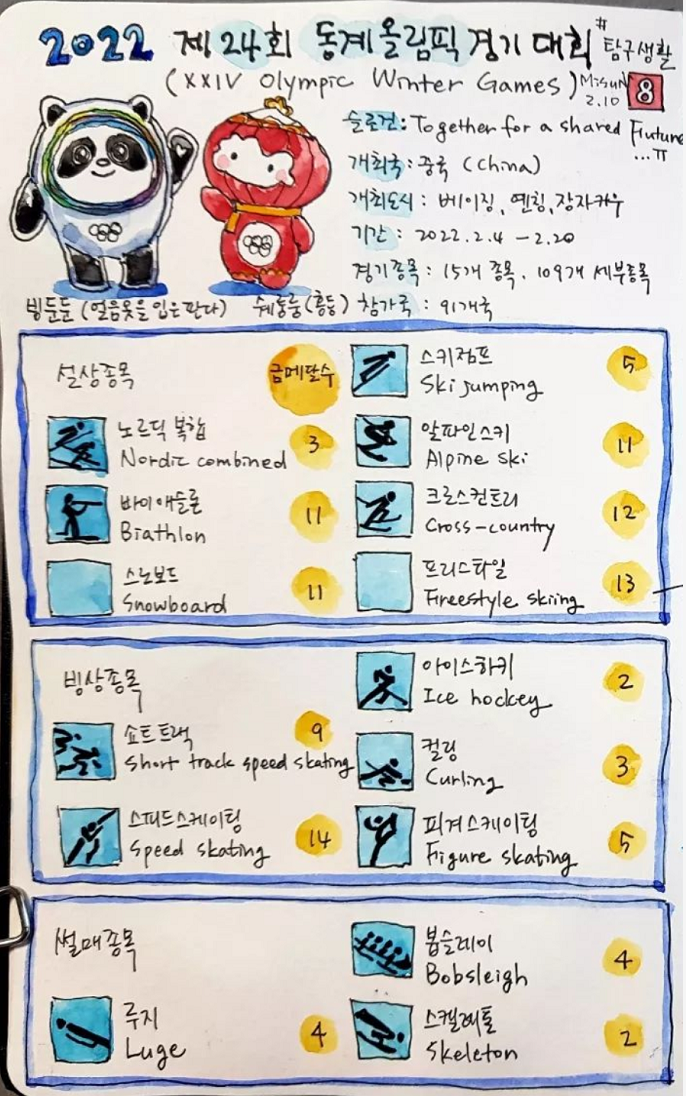 2022 제24회 동계올림픽 경기 대회 #탐구생활
(XXIV Olympic Winter Games) Misun 2.10 8
슬로건: Together for a shared Future
...π
개최국: 중국 (China)
개최도시: 베이징, 옌칭, 장자커우
기간: 2022.2.4 - 2.20
경기종목: 15개 종목, 109개 세부종목
빙둔둔 (얼음옷을 입은 판다) 쉐룽룽 (홍등) 참가국: 91개국
설상종목 금메달수
노르딕 복합 3
Nordic combined
바이애슬론 11
Biathlon
스노보드 11
Snowboard
스키점프 5
Ski jumping
알파인스키 11
Alpine ski
크로스컨트리 12
Cross-country
프리스타일 13
Freestyle skiing
빙상종목
쇼트트랙 9
Short track speed skating
스피드스케이팅 14
Speed skating
아이스하키 2
Ice hockey
컬링 3
Curling
피겨스케이팅 5
Figure skating
썰매종목
루지 4
Luge
봅슬레이 4
Bobsleigh
스켈레톤 2
Skeleton